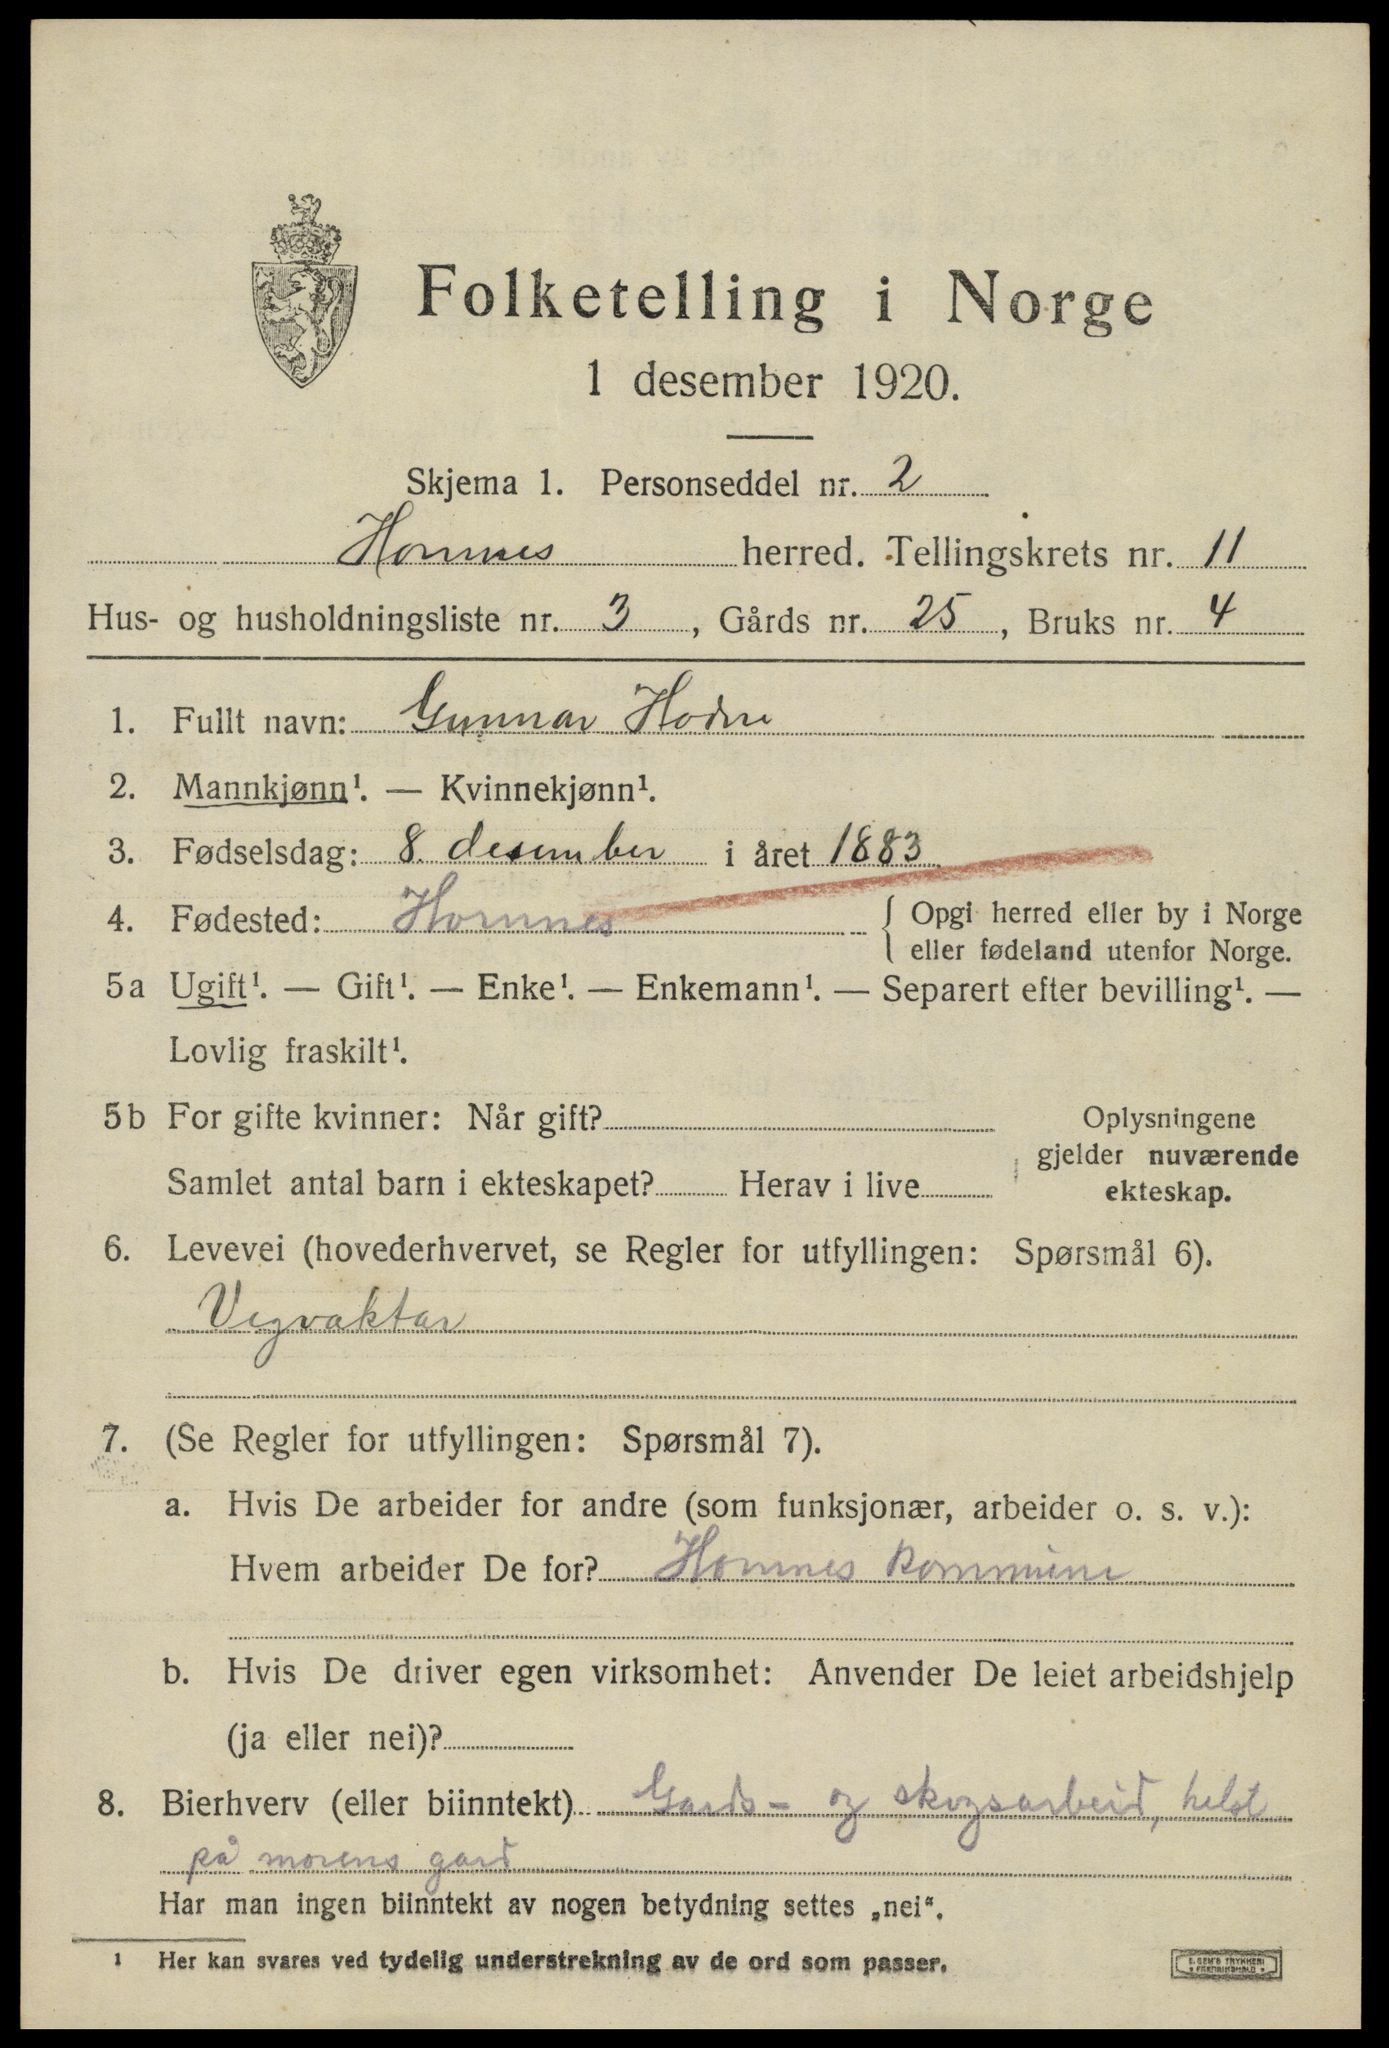 Folketelling i Norge
1 desember 1920.
Skjema 1. Personseddel nr. 2
Hornnes herred. Tellingskrets nr. 11
Hus- og husholdningsliste nr. 3, Gårds nr. 25, Bruks nr. 4
1. Fullt navn: Gunnar Hodne
2. Mannkjønn¹. — Kvinnekjønn¹.
3. Fødselsdag: 8. desember i året 1883
4. Fødested: Hornnes { Opgi herred eller by i Norge
eller fødeland utenfor Norge.
5a Ugift¹. — Gift¹. — Enke¹. — Enkemann¹. — Separert efter bevilling¹. —
Lovlig fraskilt¹.
5b For gifte kvinner: Når gift? Oplysningene
gjelder nuværende
Samlet antal barn i ekteskapet? Herav i live ekteskap.
6. Levevei (hovederhvervet, se Regler for utfyllingen: Spørsmål 6).
Vegvaktar
7. (Se Regler for utfyllingen: Spørsmål 7).
a. Hvis De arbeider for andre (som funksjonær, arbeider o. s. v.):
Hvem arbeider De for? Hornnes kommune
b. Hvis De driver egen virksomhet: Anvender De leiet arbeidshjelp
(ja eller nei)?
8. Bierhverv (eller biinntekt) Gards- og skogsarbeid, helst
på morens gard
Har man ingen biinntekt av nogen betydning settes „nei“.
¹ Her kan svares ved tydelig understrekning av de ord som passer.
E. SEM'S TRYKKERI
FREDRIKSHALD